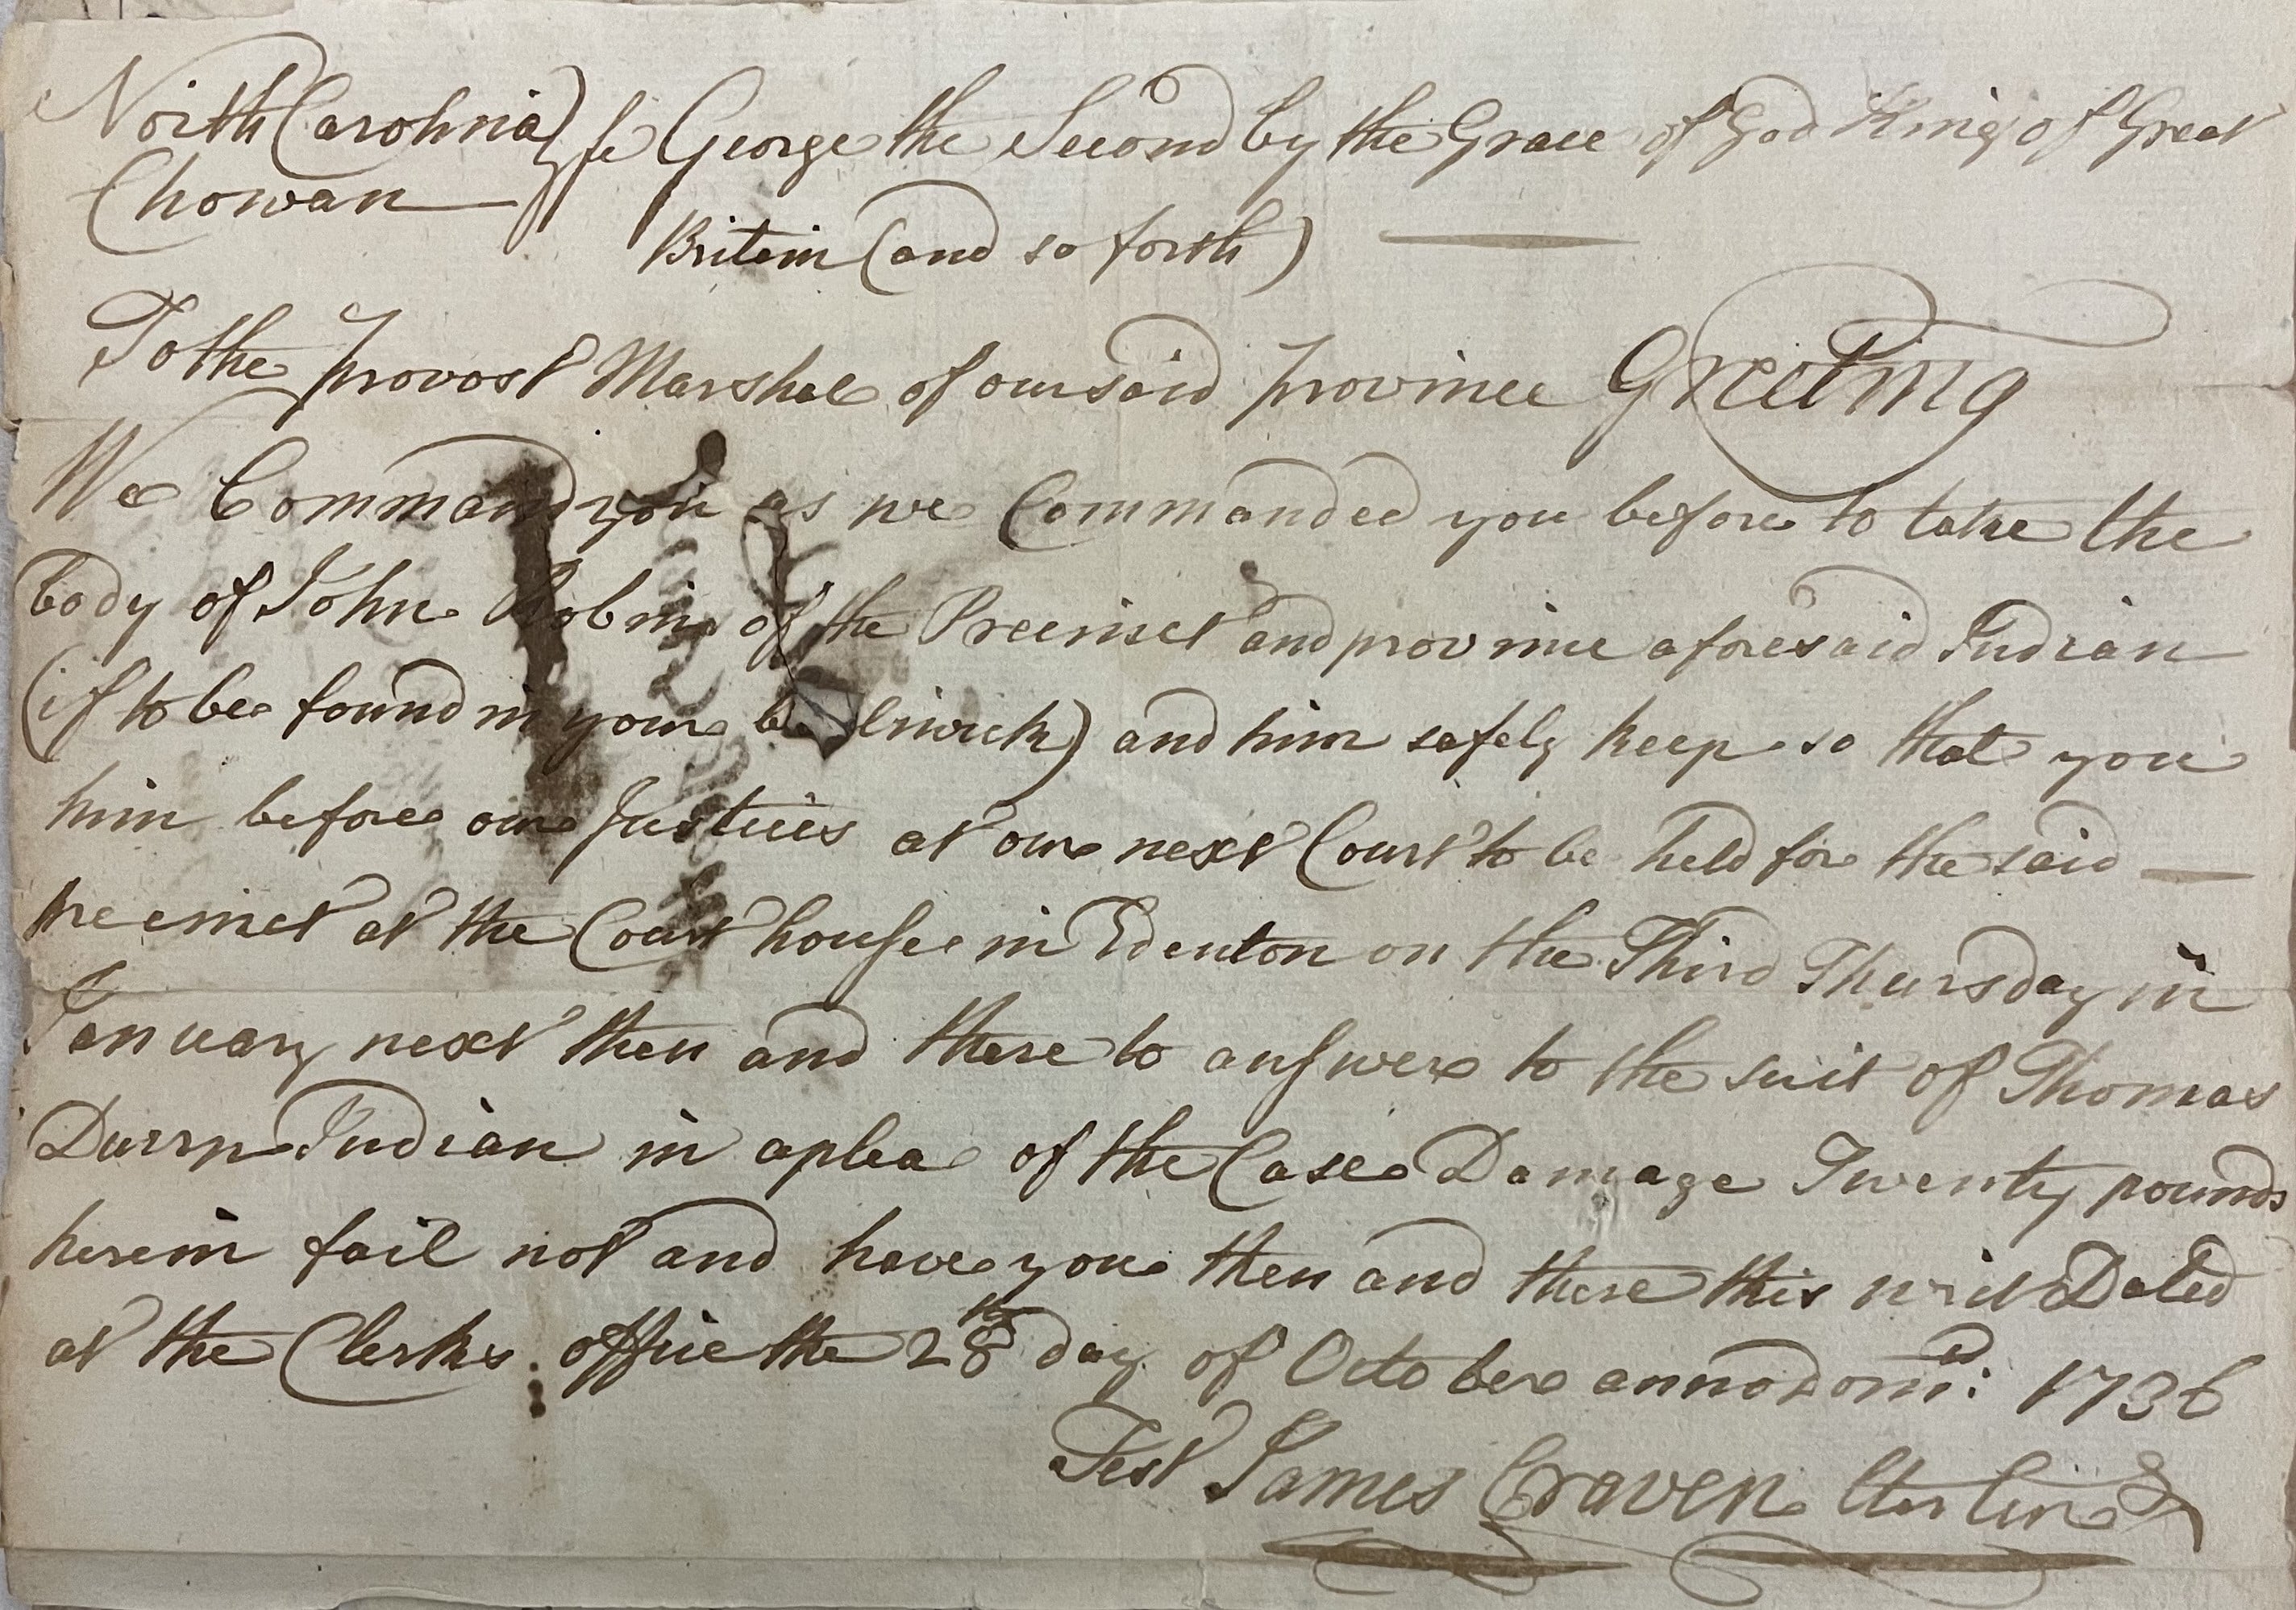 North Carolina } ss George the Second by the Grace of God King of Great
Chowan
Britain (and so forth)
To the provost Marshal of our said province Greeting
We Command you as we Commanded you before to take the
body of John Robins of the Precinct and province aforesaid Indian
(if to be found in your bailiwick) and him safely keep so that you
him before our Justices at our next Court to be held for the said
precinct at the Court house in Edenton on the Third Thursday in
January next then and there to answere to the suit of Thomas
Indian in a plea of the Case Damage Twenty pounds
herein fail not and have you then and there this writ Dated
at the Clerks office the 28th day of October anno dom: 1736
Test James Craven